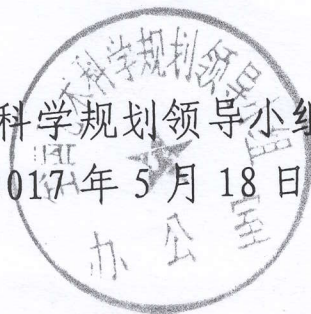 科学规划领导小组
017年5月18日
术科学规划领导小组
办公室